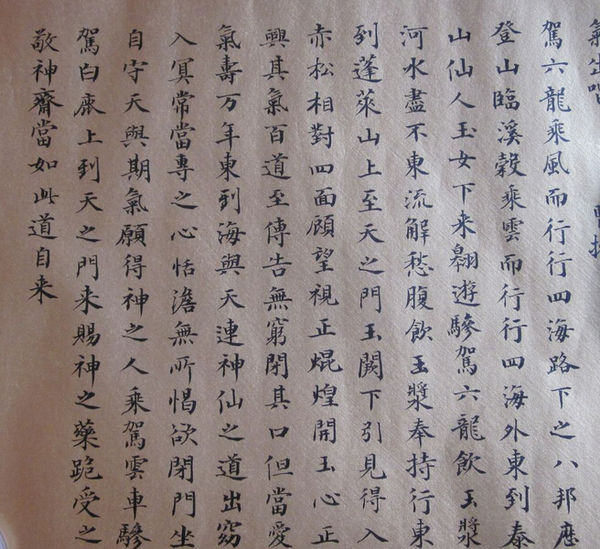 氣出唱 曹操
駕六龍乘風而行行四海路下之八邦歷
登山臨溪穀乘雲而行行四海外東到泰
山仙人玉女下来翱遊驂駕六龍飲玉漿
河水盡不東流解愁腹飲玉漿奉持行東
到蓬萊山上至天之門玉闕下引見得入
赤松相對四面顧望視正焜煌開玉心正
興其氣百道至傳告無窮閉其口但當愛
氣壽万年東到海與天連神仙之道出窈
入冥常當專之心恬澹無所愒欲閉門坐
自守天與期氣願得神之人乘駕雲車驂
駕白鹿上到天之門来賜神之藥跪受之
敬神齋當如此道自来